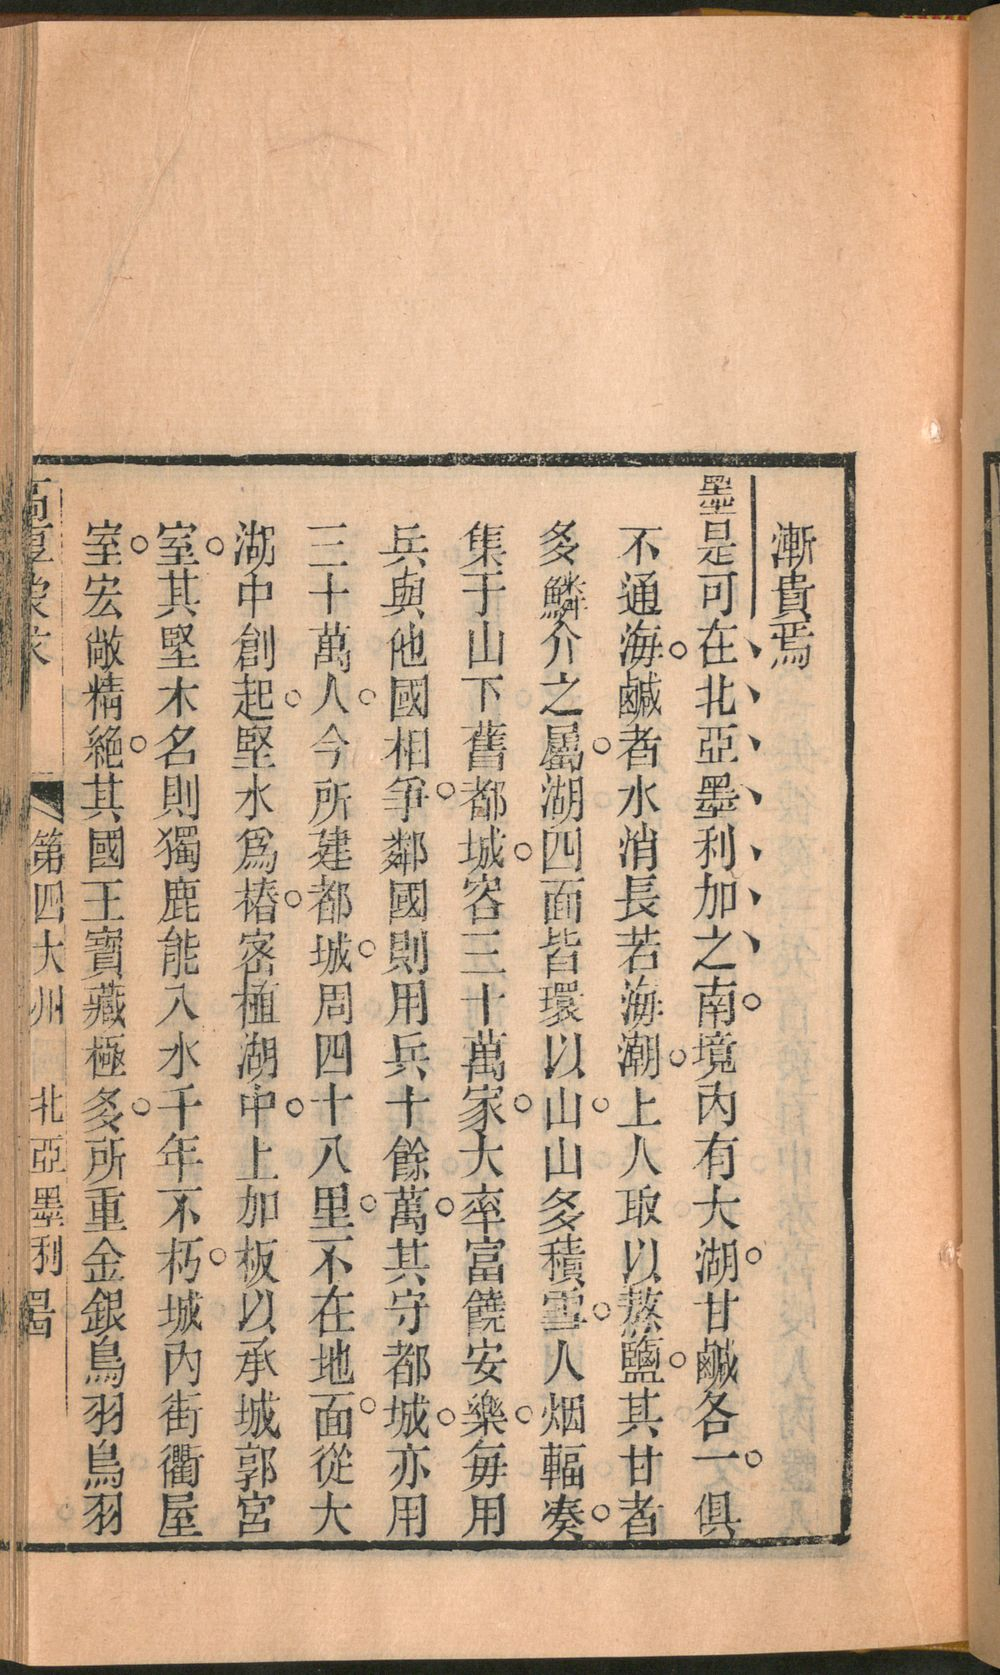 漸貴焉
墨是可在北亞墨利加之南境內有大湖甘鹹各一俱
不通海鹹者水消長若海潮上人取以熬鹽其甘者
多鱗介之屬湖四面皆環以山山多積雪人烟輻奏
集于山下舊都城容三十萬家大率富饒安樂每用
兵與他國相爭鄰國則用兵十餘萬其守都城亦用
三十萬人今所建都城周四十八里不在地面從大
湖中創起堅木爲樁密植湖中上加板以承城郭宮
室其堅木名則獨鹿能入水千年不朽城內街衢屋
室宏敞精絕其國王寶藏極多所重金銀鳥羽鳥羽
高厚蒙求 第四大州 北亞墨利